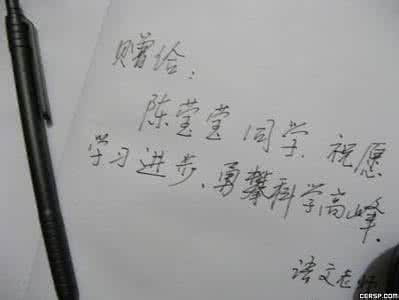 赠给：
陈莹莹同学，祝愿
学习进步，勇攀科学高峰．
语文老师
CERSP.COM